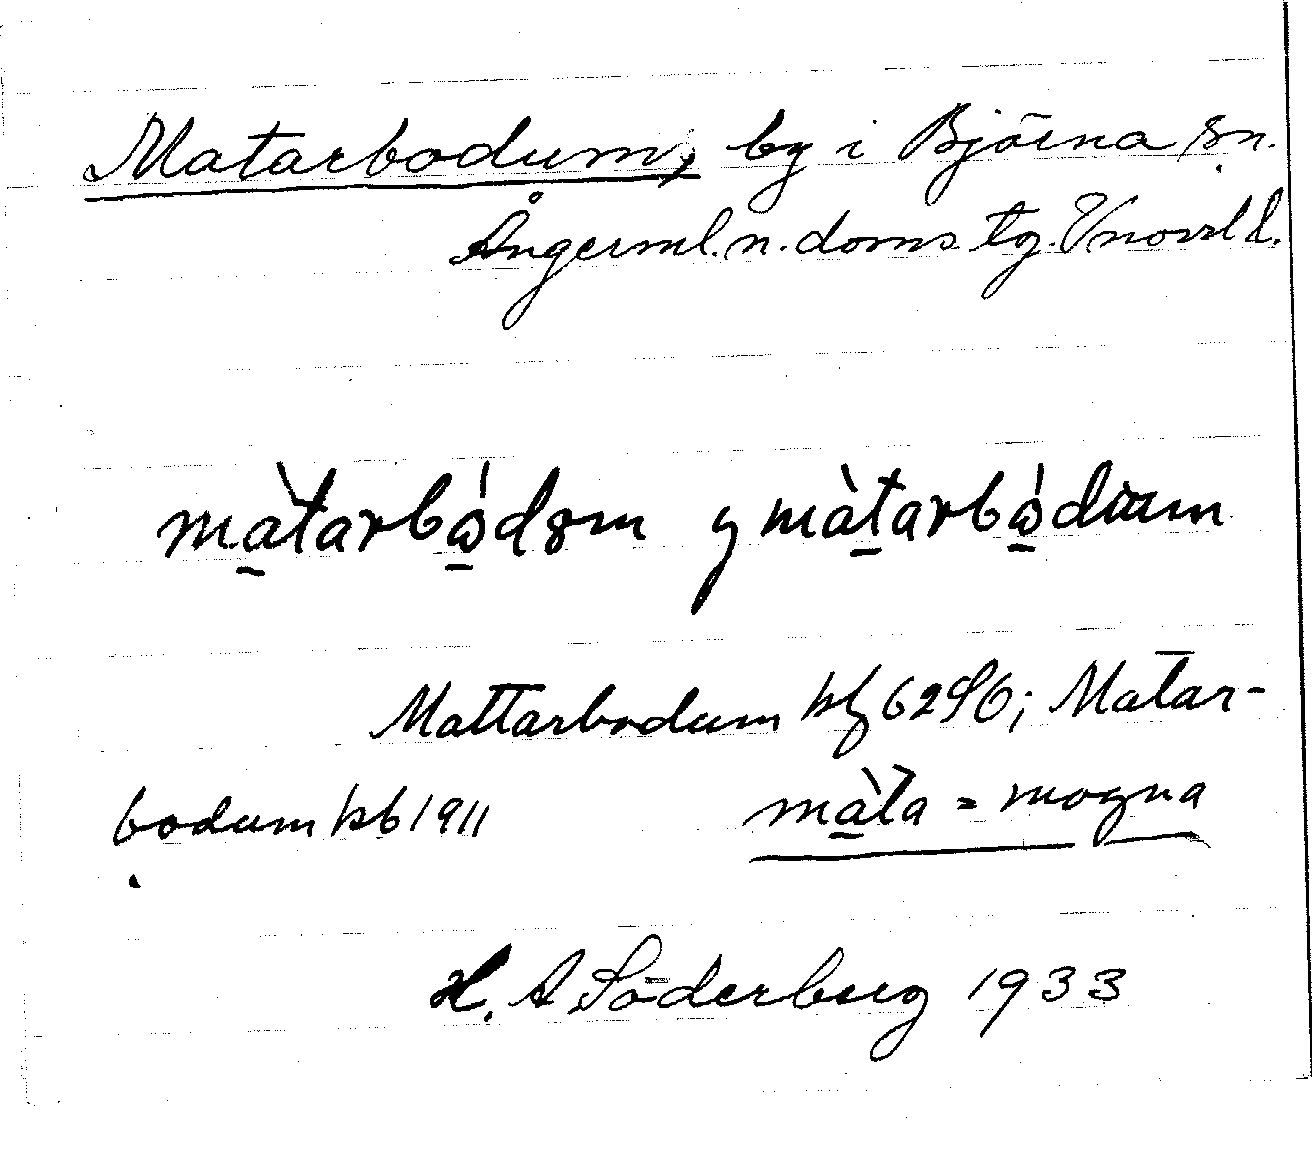 Matarbodum, by i Björna sn.
Ångerml. n. doms tg. Vnorrl l.
màtarbω̇dəm y màtarbω̇dum
Mattarbodum hfl 6296; Matar-
bodum kb 1911 màta = mogna
H. A Söderberg 1933